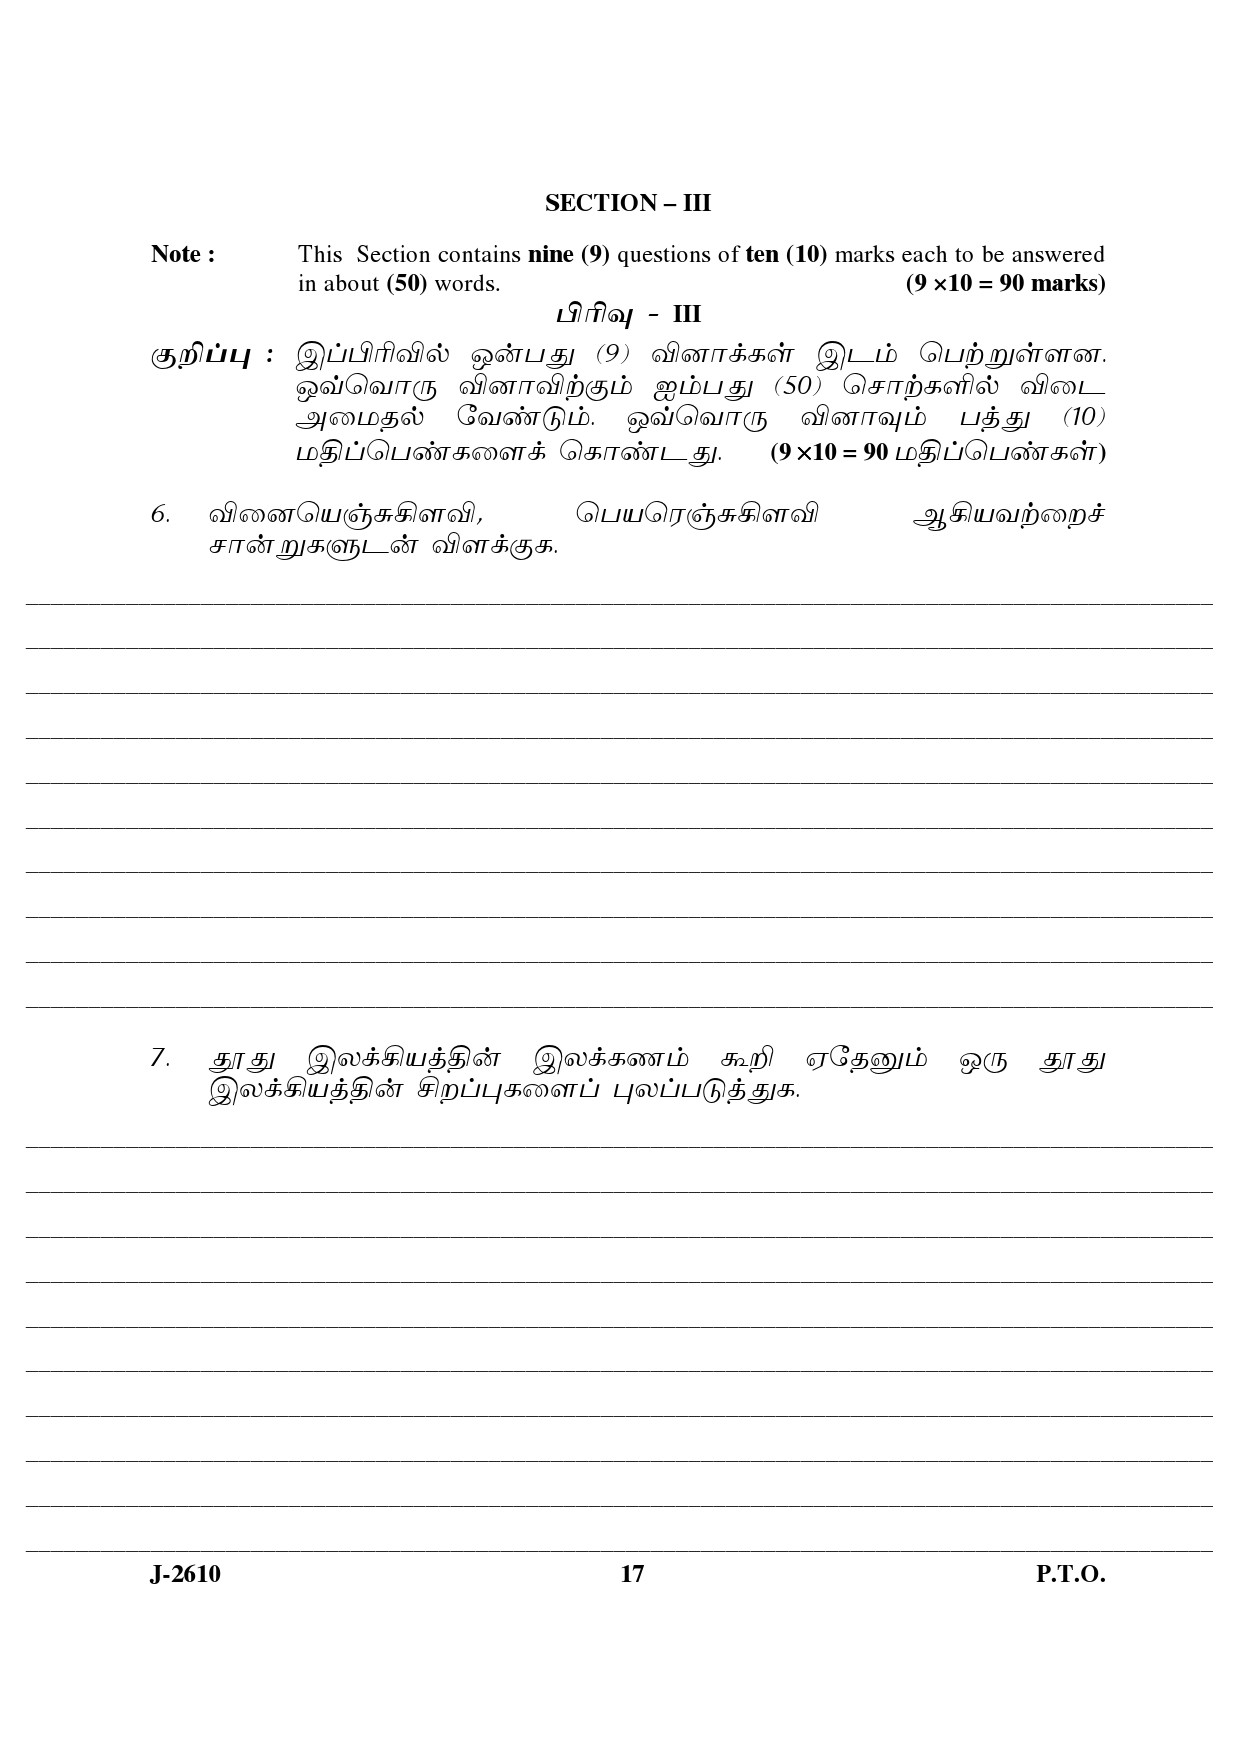 SECTION – III
Note : This Section contains nine (9) questions of ten (10) marks each to be answered
in about (50) words. (9 ×10 = 90 marks)
பிரிவு - III
குறிப்பு : இப்பிரிவில் ஒன்பது (9) வினாக்கள் இடம் பெற்றுள்ளன.
ஒவ்வொரு வினாவிற்கும் ஐம்பது (50) சொற்களில் விடை
அமைதல் வேண்டும். ஒவ்வொரு வினாவும் பத்து (10)
மதிப்பெண்களைக் கொண்டது. (9 ×10 = 90 மதிப்பெண்கள்)
6. வினையெஞ்சுகிளவி, பெயரெஞ்சுகிளவி ஆகியவற்றைச்
சான்றுகளுடன் விளக்குக.
7. தூது இலக்கியத்தின் இலக்கணம் கூறி ஏதேனும் ஒரு தூது
இலக்கியத்தின் சிறப்புகளைப் புலப்படுத்துக.
J-2610 17 P.T.O.